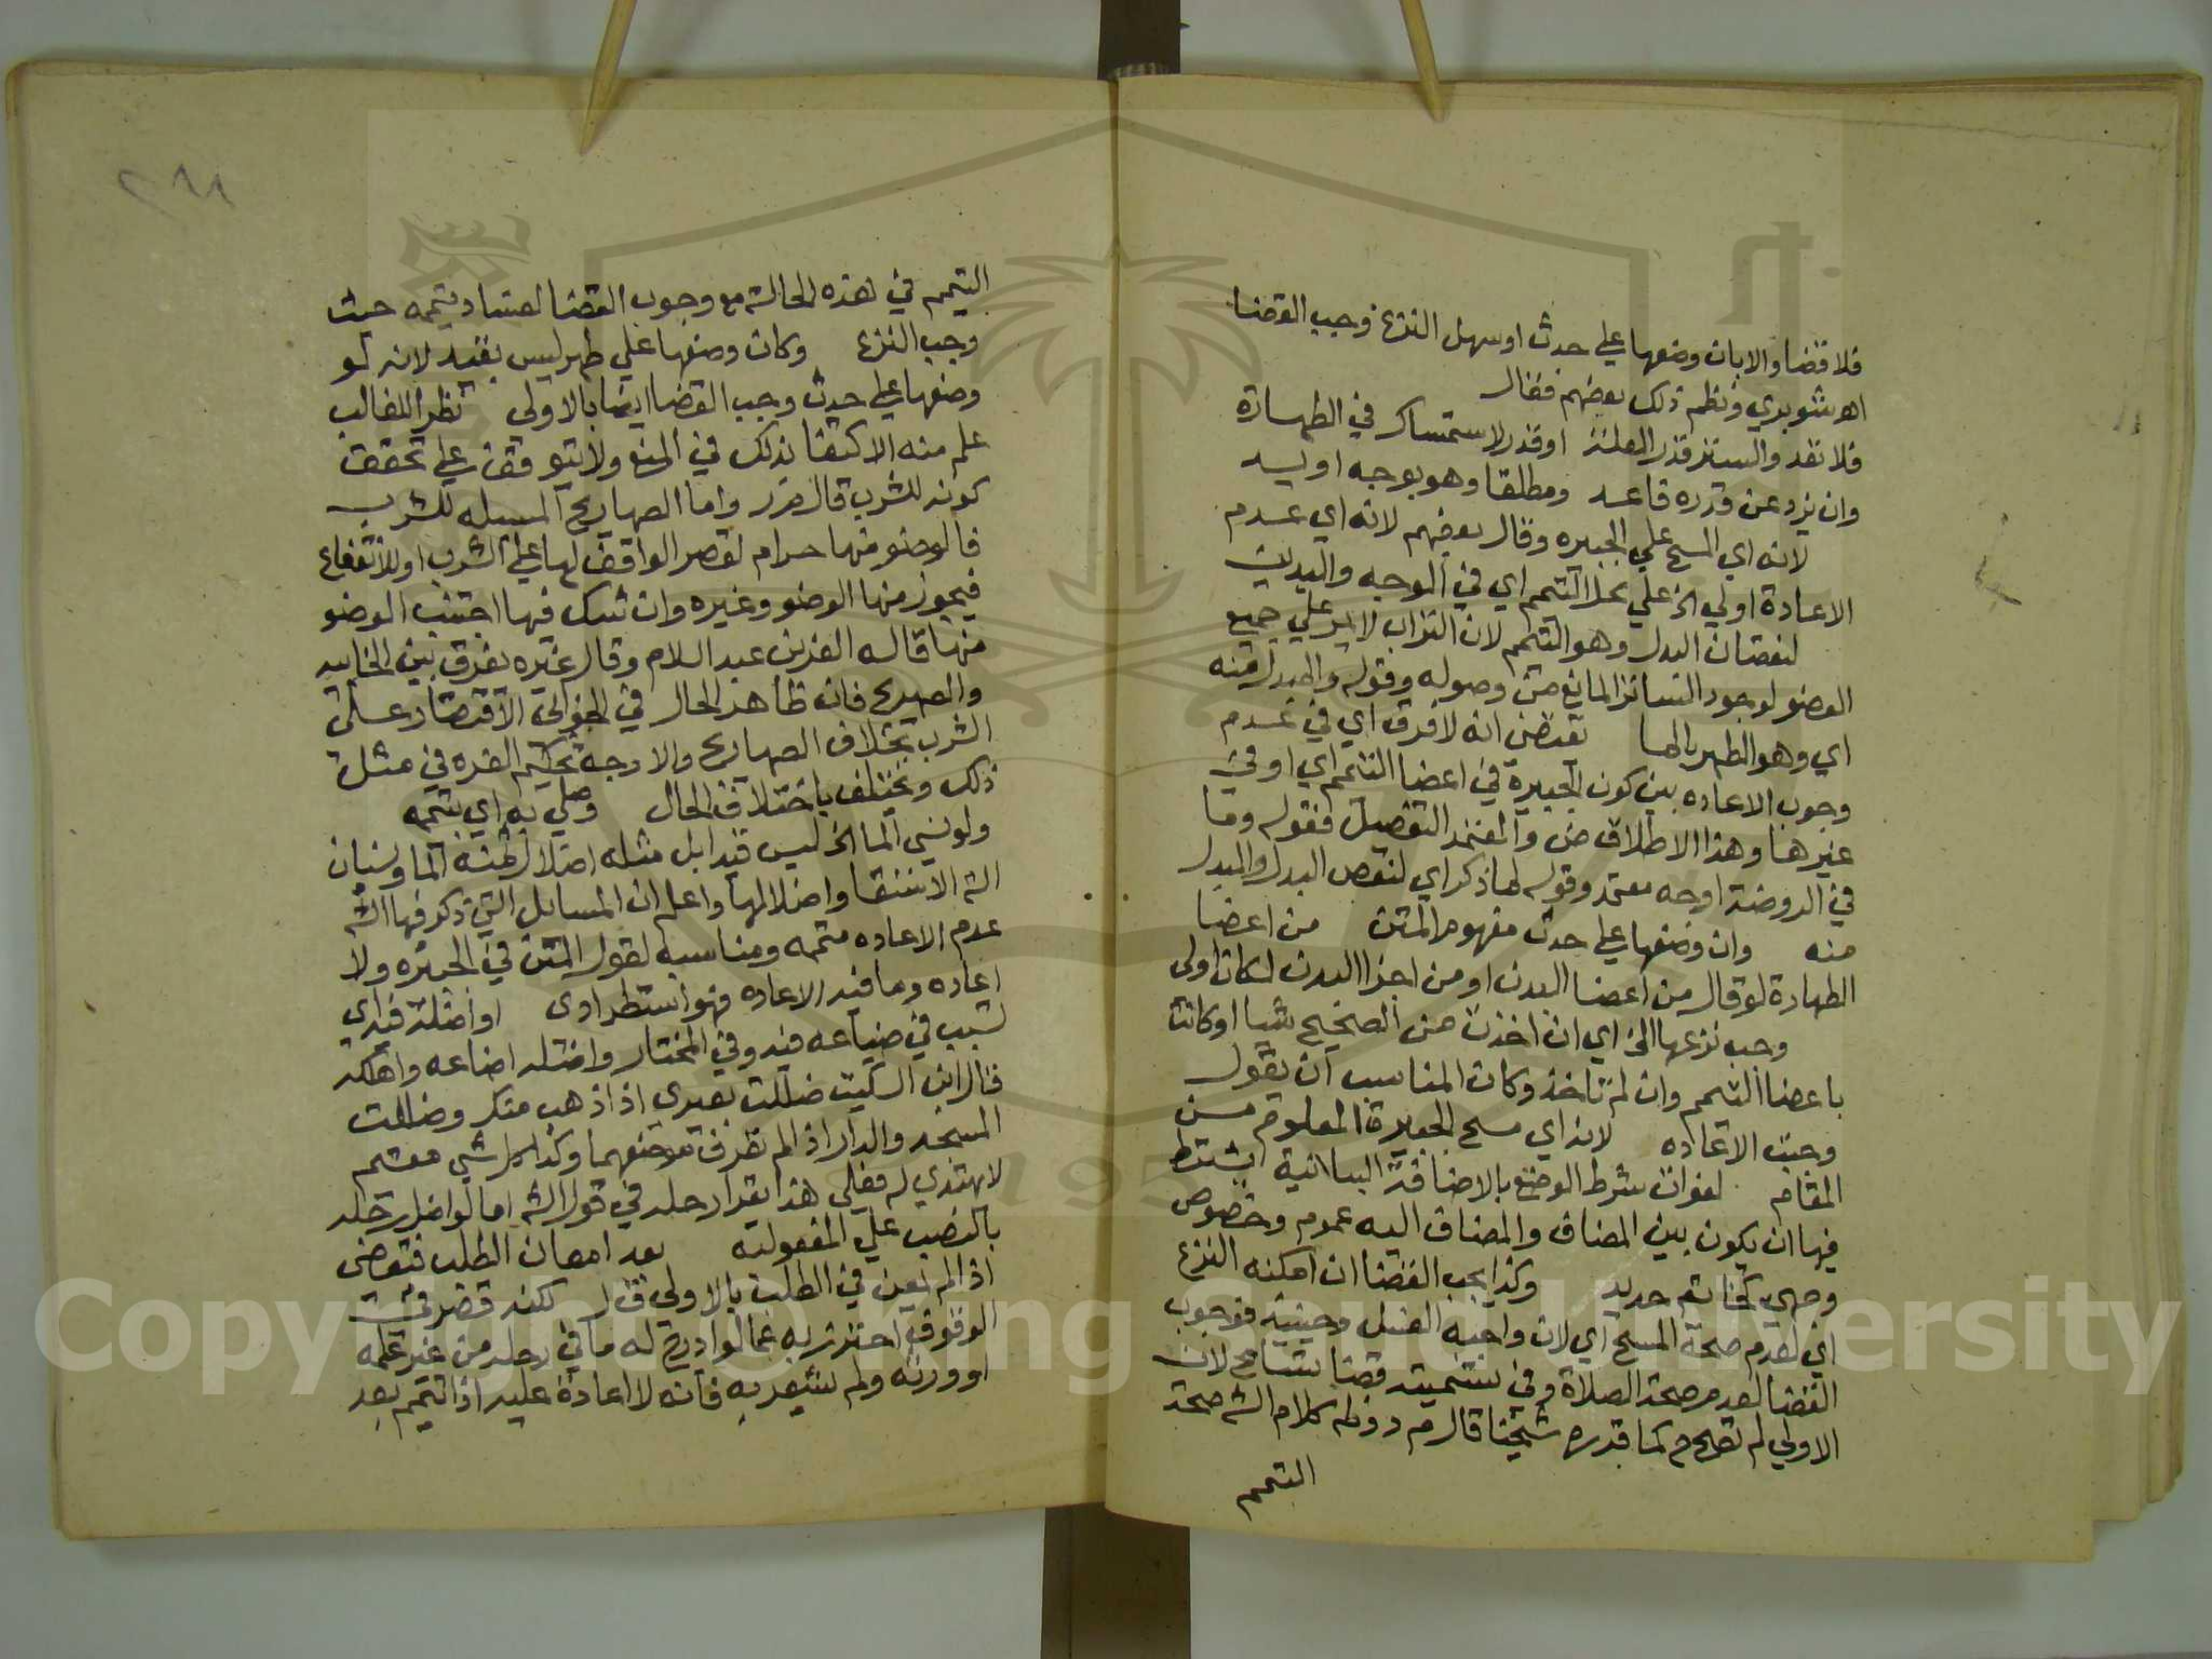 فلا قضا والا بان وضعها على حدث او سهل النزع وجب القضا
اه شوبري ونظم ذلك بعضهم فقال
فلا تعد والستر قدر العلة او قدر الاستمساك في الطهارة
وان يزد عن قدره فاعد ومطلقا وهو بوجه او يد
لانه اي المسح علي الجبيره وقال بعضهم لانه اي عدم
الاعادة اولي الخ علي محل التيمم اي في الوجه واليدين
لنقصان البدل وهو التيمم لان التراب لا يمر علي جميع
العضو لوجود الساتر المانع من وصوله وقوله والمبدل منه
اي وهو الطهر بالما يقتضي انه لا فرق اي في عدم
وجوب الاعاده بين كون الجبيرة في اعضا التيمم اي او في
غيرها وهذا الاطلاق ض والمعتمد التفصيل فقوله وما
في الروضة اوجه معتمد وقوله لما ذكر اي لنقص البدل والمبدل
منه وان وضعها علي حدث مفهوم المتن من اعضا
الطهارة لو قال من اعضا البدن او من اجزا البدن لكان اولى
وجب نزعها الخ اي ان اخذت من الصحيح شيا او كانت
باعضا التيمم وان لم تاخذ وكان المناسب ان يقول
وجبت الاعاده لانه اي مسح الجبيرة المعلوم من
المقام لفوات شرط الوضع بالاضافة البيانية يشترط
فيها ان يكون بين المضاف والمضاف اليه عموم وخصوص
وجهي كخاتم حديد وكذا يجب القضا ان امكنه النزع
اي لعدم صحة المسح اي لان واجبه الغسل وحينئذ فوجوب
القضا لعدم صحة الصلاة وفي تسميته قضا تسامح لان
الاولي لم تصح م كما قدره شيخنا قال م د وظ كلام الش صحة
التيمم
٢٩٨
التيمم في هذه الحالة مع وجوب القضا لفساد تيممه حيث
وجب النزع وكان وضعها علي طهر ليس بقيد لانه لو
وضعها علي حدث وجب القضا ايضا بالاولى نظرا للغالب
علم منه الاكتفا بذلك في المنع ولا يتوقف علي تحقق
كونه للشرب قال م ر واما الصهاريج المسبله للشرب
فالوضو منها حرام لقصر الواقف لها علي الشرب او للانتفاع
فيجوز منها الوضو وغيره وان شك فيها اجتنب الوضو
منها قاله العز بن عبد السلام وقال غيره يفرق بين الخابيه
والصهريج فان ظاهر الحال في الخوابي الاقتصار علي
الشرب بخلاف الصهاريج والاوجه تحكيم القرينه في مثل
ذلك ويختلف باختلاف الحال وصلي به اي بتيممه
ولو نسي الما الخ ليس قيدا بل مثله اضلال ثمنه الما ونسيان
الة الاستقا واضلالها واعلم ان المسايل التي ذكر فيها الش
عدم الاعاده متممه ومناسبه لقول المتن في الجبيره ولا
اعاده وما فيه الاعاده فهو استطرادى او اضله فيه اي
تسبب في ضياعه فيه وفي المختار واضله اضاعه واهلكه
قال ابن السكيت ضللت بعيري اذا ذهب منك وضللت
المسجد والدار اذا لم تعرف موضعهما وكذا كل شي مقيم
لا يهتدي له فعلي هذا يقرا رحله في قول الش اما لو اضل رحله
بالنصب علي المفعوليه بعد امعان الطلب فيقضى
اذا لم يمعن في الطلب بالاولى ق ل لكنه قصر في
الوقوف احترز به عما لو ادرج له ما في رحله من غير علمه
او ورثه ولم يشعر به فانه لا اعادة عليه اذا تيمم بعد
Copyright © King Saud University